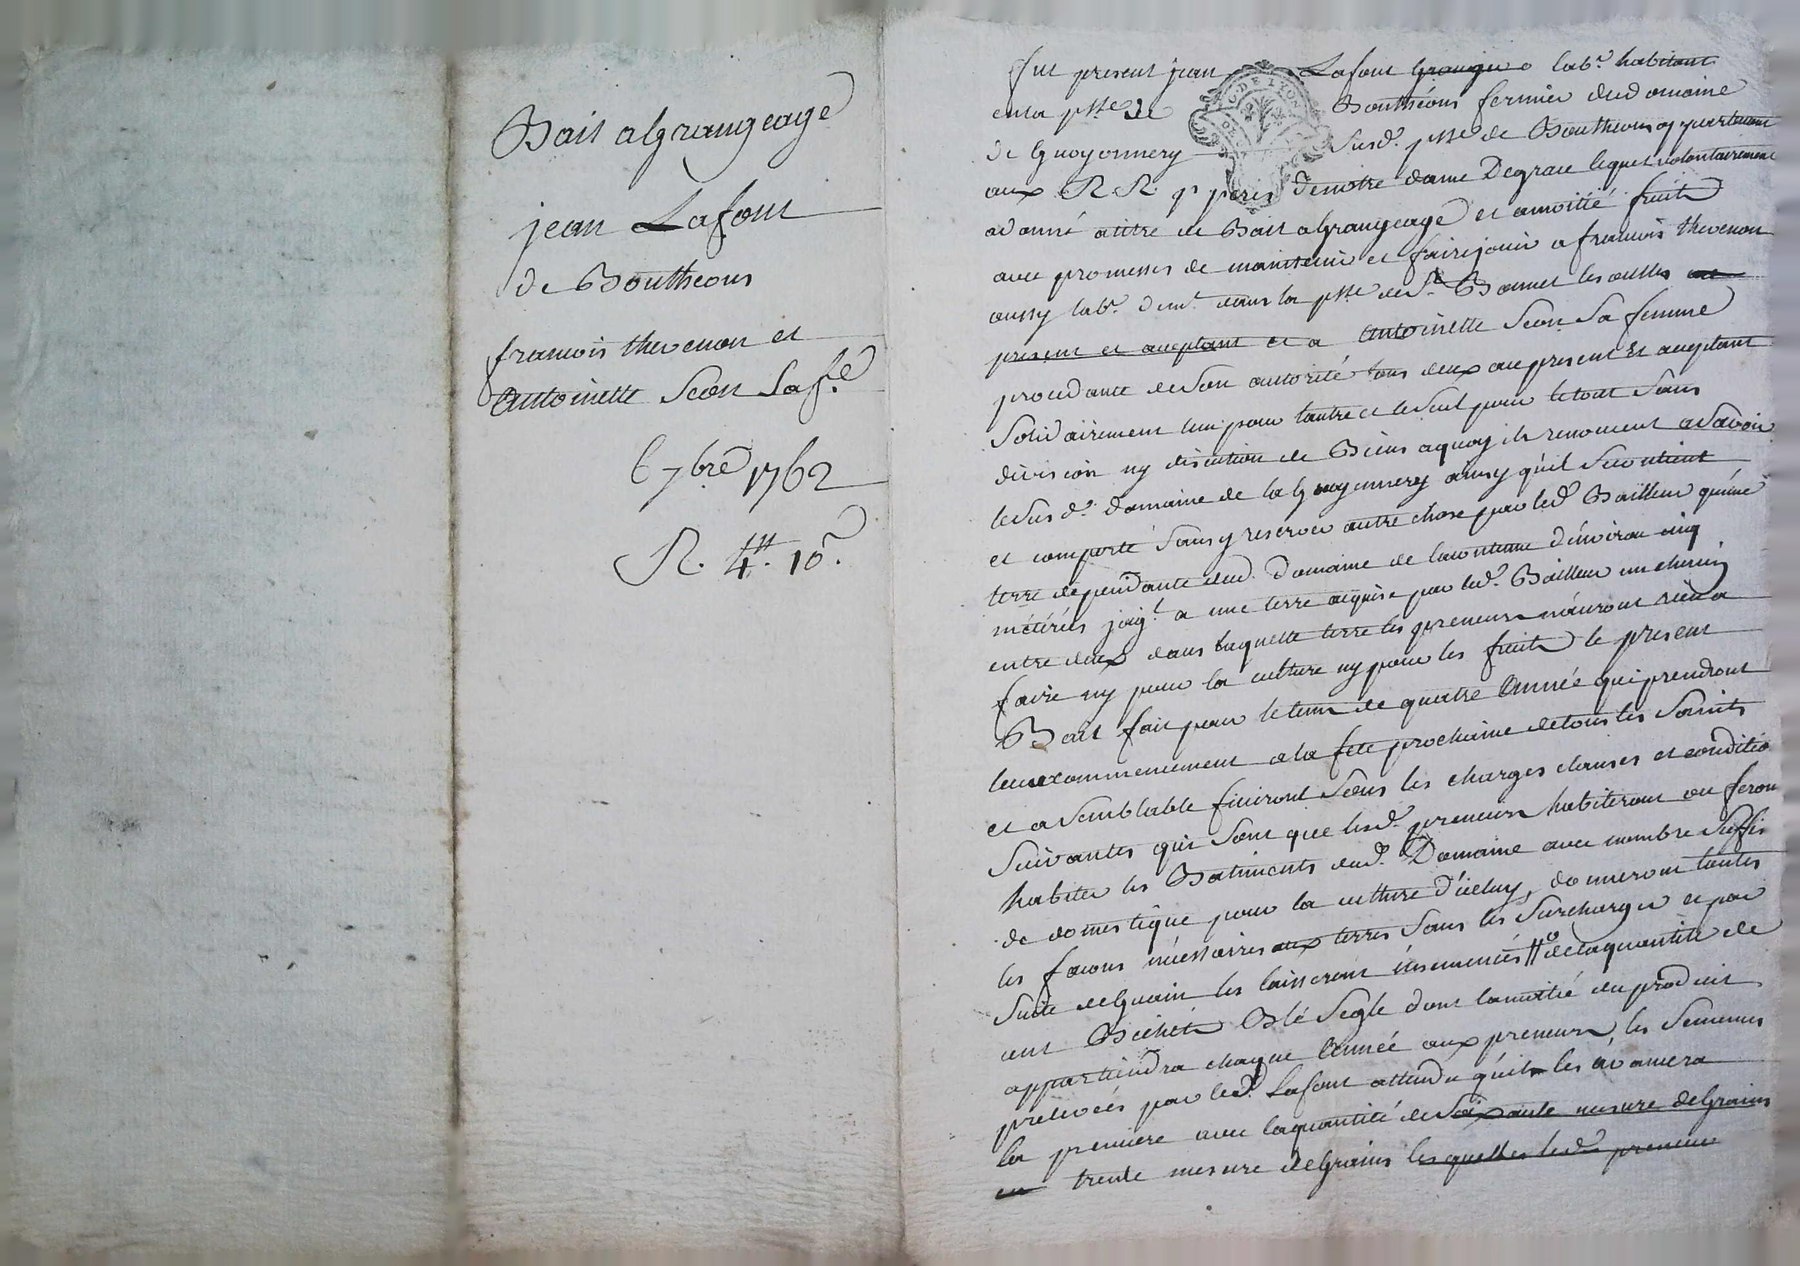 Bail a grangeage
jean Lafont
de Bouthéons
francois thevenon et
Antoinette Seon Sa fe
6 7bre 1762
R. 4tt. 10s.
fut present jean Lafont granger labr habitant
en la psse de Bouthéons fermier du domaine
de Guoyonnery Susd. psse de Boutheons appartenant
aux R R. pr peres de notre dame De grace lequel volontairement
a donné a titre de Bail a Grangeage et a moitié fruits
avec promesses de maintenir et faire jouir a francois thevenon
aussy labr. demt. dans la psse de St. Bonnet les oulles
present et acceptant et a Antoinette Seon Sa femme
procedante de son autorité tous deux au present Et aceptant
Solidairement lun pour lautre et le Seul pour le tout Sans
division ny discution de Biens a quoy ils renoncent a Savoir
le Sus d. domaine de la Guoyonnery ainsy quil Se contient
et comporte Sans y reserver autre chose par led. Bailleur qu'une
terre dependante dud. Domaine de la contenue d'environ cinq
métérés joigt. a une terre acquise par led. Bailleur un chemin
entre deux dans laquelle terre les preneurs n'auront rien a
faire ny pour la culture ny pour les fruits le present
Bail fait pour le tems de quatre année qui prendront
leur commencement a la fete prochaine de tous les Saints
et a Semblable finiront Sous les charges clauses et conditio
Suivantes qui Sont que lesd. preneurs habiteront ou feron
habiter les Batiments dud. Domaine avec nombre Suffis
de domestique pour la culture d'iceluy, donneront toutes
les facons nécessaires aux terres Sans les Surcharger et par
Suite de Guain les laisseront énsemencés de la quantité de
cent Bichets Blé Segle dont la moitié du produit
appartiendra chaque année aux preneurs les Semences
prelevées par led. Lafont attendu qu'il les avancera
la premiere avec la quantité de Soixante mesure de Grains
en trente mesure de Grains lesquelles led. preneur